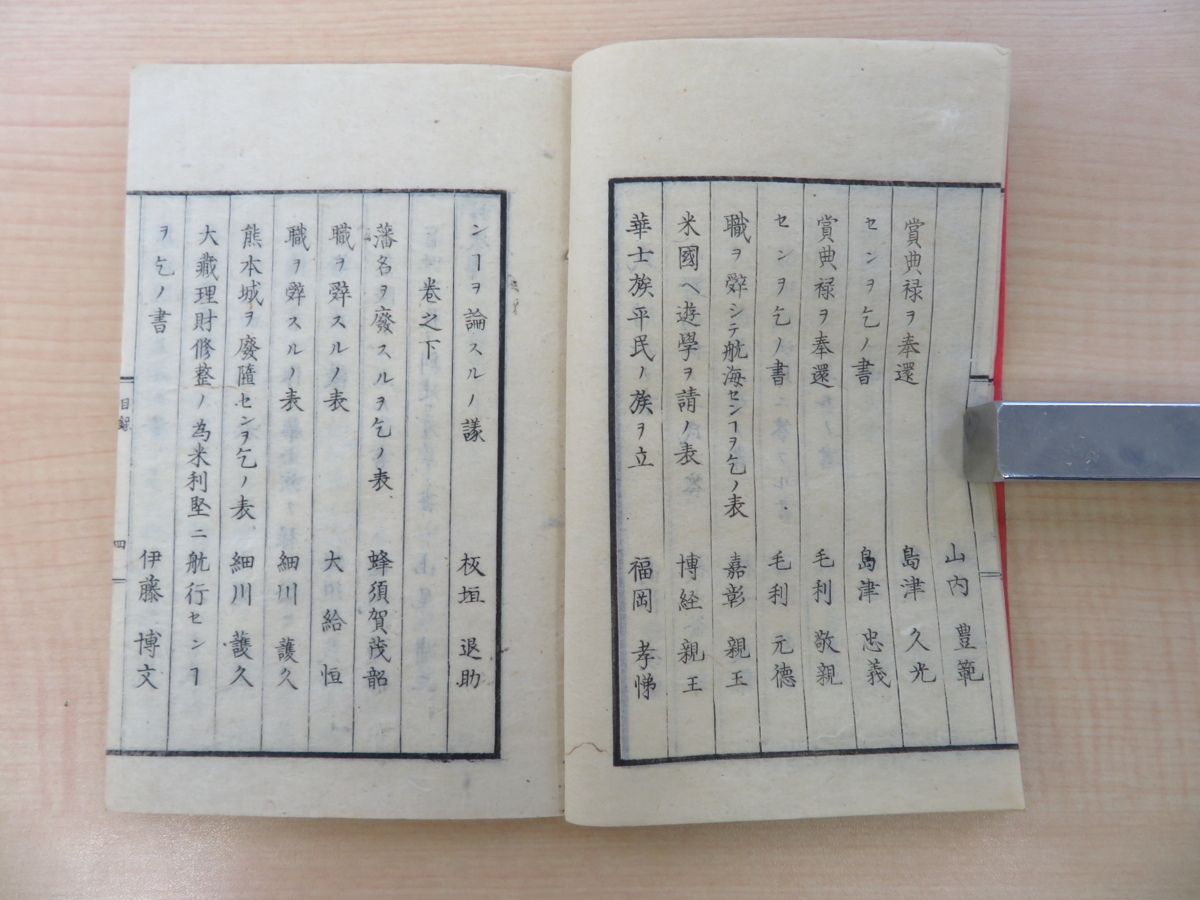 山内 豊範
賞典禄ヲ奉還 島津 久光
センヲ乞ノ書 島津 忠義
賞典禄ヲ奉還 毛利 敬親
センヲ乞ノ書 毛利 元德
職ヲ辤シテ航海センヿヲ乞ノ表 嘉彰 親王
米國ヘ遊學ヲ請ノ表 博経 親王
華士族平民ノ族ヲ立 福岡 孝悌
ンヿヲ論スルノ議 板垣 退助
卷之下
藩名ヲ廢スルヲ乞ノ表 蜂須賀茂韶
職ヲ辤スルノ表 大給 恒
職ヲ辤スルノ表 細川 護久
熊本城ヲ廢隳センヲ乞ノ表 細川 護久
大藏理財修整ノ為米利堅ニ航行センヿ
ヲ乞ノ書 伊藤 博文
目録
四